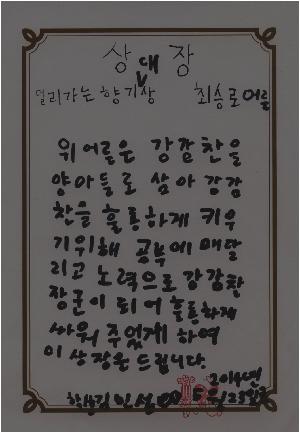 상대장
멀리가는 향기상 최승로어를
위 어른은 강감찬을
양아들로 삼아 강감
찬을 훌륭하게 키우
기위해 공부에 매달
리고 노력으로 강감찬
장군이 되어 훌륭하게
싸워 주었게 하여
이 상장을 드립니다.
2014년
23일